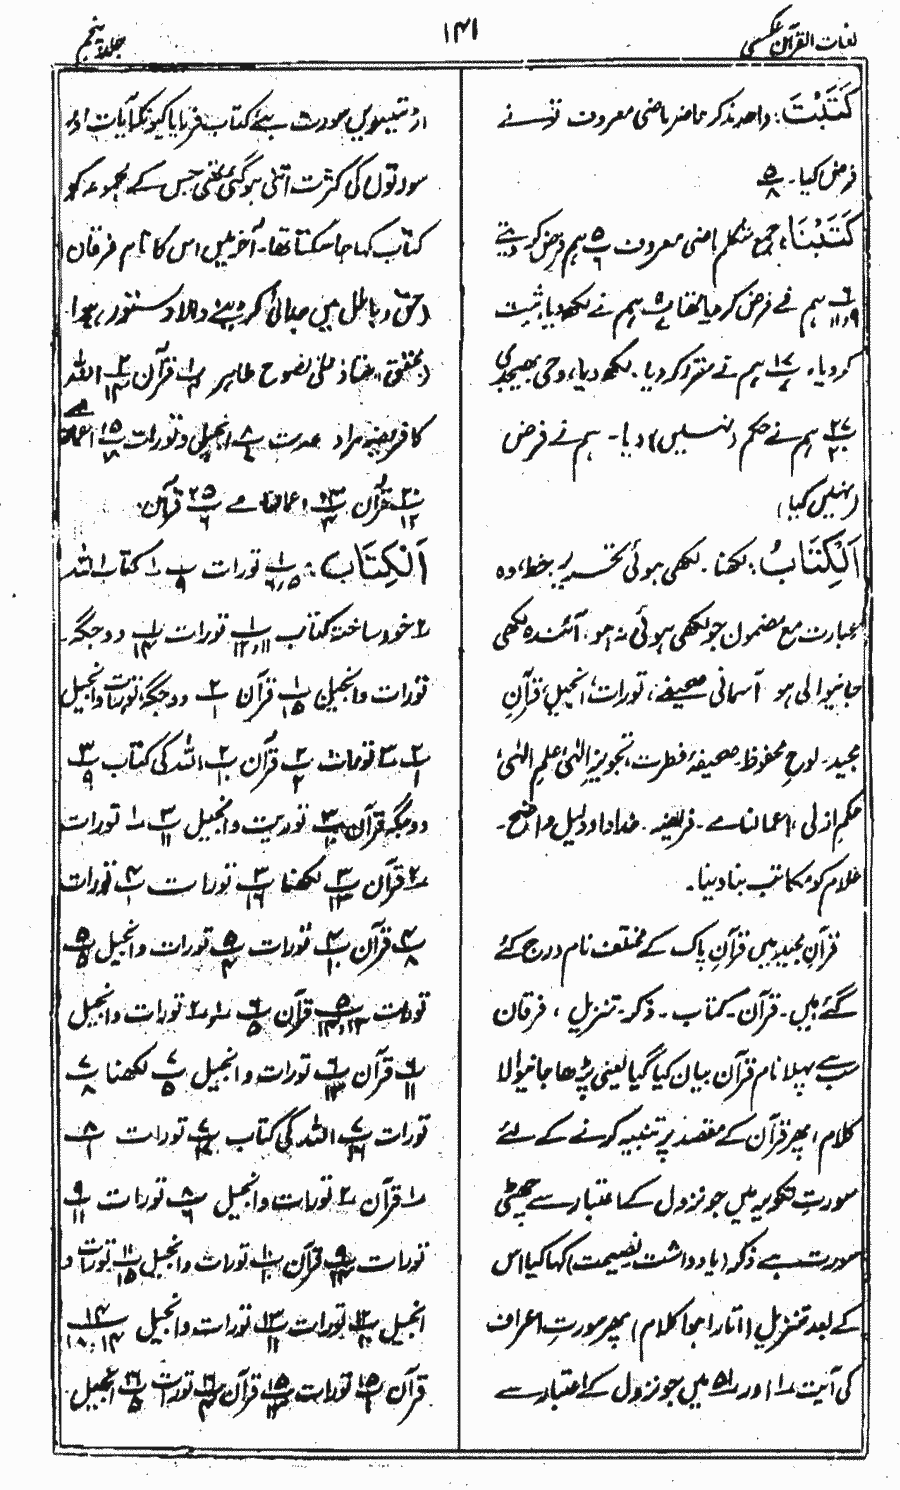 لغات القرآن عکسی
۱۴۱
جلد پنجم
كَتَبْتَ: واحد مذکر حاضر ماضی معروف تونے
فرض کیا۔ پ ۵/۸
كَتَبْنَا: جمع متکلم ماضی معروف پ ۵/۶ ہم فرض کر دیتے
پ ۶/۹،۱۱ ہم نے فرض کر دیا تھا پ ۹/۷ ہم نے لکھ دیا، ثبت
کر دیا، پ ۱۷/۷ ہم نے مقرر کر دیا۔ لکھ دیا، وحی بھیجدی
پ ۲۷/۲۰ ہم نے حکم (نہیں) دیا۔ ہم نے فرض
(نہیں کیا)
اَلْكِتَابُ: لکھنا۔ لکھی ہوئی تحریر خط، وہ
عبارت مع مضمون جو لکھی ہوئی نہ ہو۔ آئندہ لکھی
جانیوالی ہو آسمانی صحیفے، تورات، انجیل، قرآنِ
مجید۔ لوحِ محفوظ۔ صحیفۂ فطرت، تجویزِ الٰہی، علمِ الٰہی،
حکمِ ازلی، اعمالنامے۔ فریضہ۔ خداداد دلیل واضح۔
غلام کو مکاتب بنا دینا۔
قرآنِ مجید میں قرآنِ پاک کے مختلف نام درج کئے
گئے ہیں۔ قرآن۔ کتاب۔ ذکر۔ تنزیل، فرقان
سب سے پہلا نام قرآن بیان کیا گیا یعنی پڑھا جانیوالا
کلام، پھر قرآن کے مقصد پر تنبیہ کرنے کے لئے
سورتِ تکویر میں جو نزول کے اعتبار سے چھٹی
سورت ہے ذکر (یادداشت نصیحت) کہا گیا اس
کے بعد تنزیل (اتارا ہوا کلام) پھر سورتِ اعراف
کی آیت ۱ اور ۵۱ میں جو نزول کے اعتبار سے
اڑتیسویں سورت ہے کتاب فرمایا کیونکہ آیات اور
سورتوں کی کثرت اتنی ہو گئی تھی جس کے مجموعہ کو
کتاب کہا جا سکتا تھا۔ آخر میں اس کا نام فرقان
(حق و باطل میں جدائی کر دینے والا دستور) ہوا۔
کا فریضہ مراد عدت پ ۸/۷ انجیل و تورات پ ۱۵/۸
اَلْكِتَاب: پ ۱/۵،۶ تورات پ ۱/۹ کتاب اللہ
۲ خود ساختہ کتاب پ ۱/۱۱،۱۲ تورات پ ۱/۱۴ دو جگہ۔
تورات و انجیل پ ۱/۱۵ قرآن پ ۲/۱ دو جگہ، تورات و انجیل
پ ۲/۱ ۳ تورات پ ۲/۲ قرآن پ ۲/۱۰ اللہ کی کتاب پ ۳/۹
دو جگہ قرآن تورات و انجیل پ ۳/۱۱ ۱ تورات
۲ قرآن پ ۳/۱۳ لکھنا پ ۳/۱۶ تورات پ ۴/۱ تورات
پ ۴/۸ قرآن پ ۴/۱۰ تورات پ ۵/۴ تورات و انجیل پ ۵/۵
تورات پ ۵/۱۳،۱۴ قرآن پ ۶/۵ ۱ و ۲ تورات و انجیل
پ ۶/۱۱ قرآن پ ۶/۱۳ تورات و انجیل پ ۷/۵ لکھنا پ ۷/۸
تورات پ ۷/۱۶ اللہ کی کتاب تورات پ ۸/۱
۱ قرآن ۲ تورات و انجیل پ ۸/۶ تورات پ ۹/۱۱
تورات قرآن پ ۱۰/۱۰ تورات و انجیل پ ۱۱/۱۵ تورات و
انجیل پ ۱۲/۲ تورات پ ۱۳/۱۱ تورات و انجیل پ ۱۴/۱۴،۱۸
قرآن پ ۱۵/۱ تورات پ ۱۵/۱۳ قرآن تورات پ ۱۶/۵ انجیل